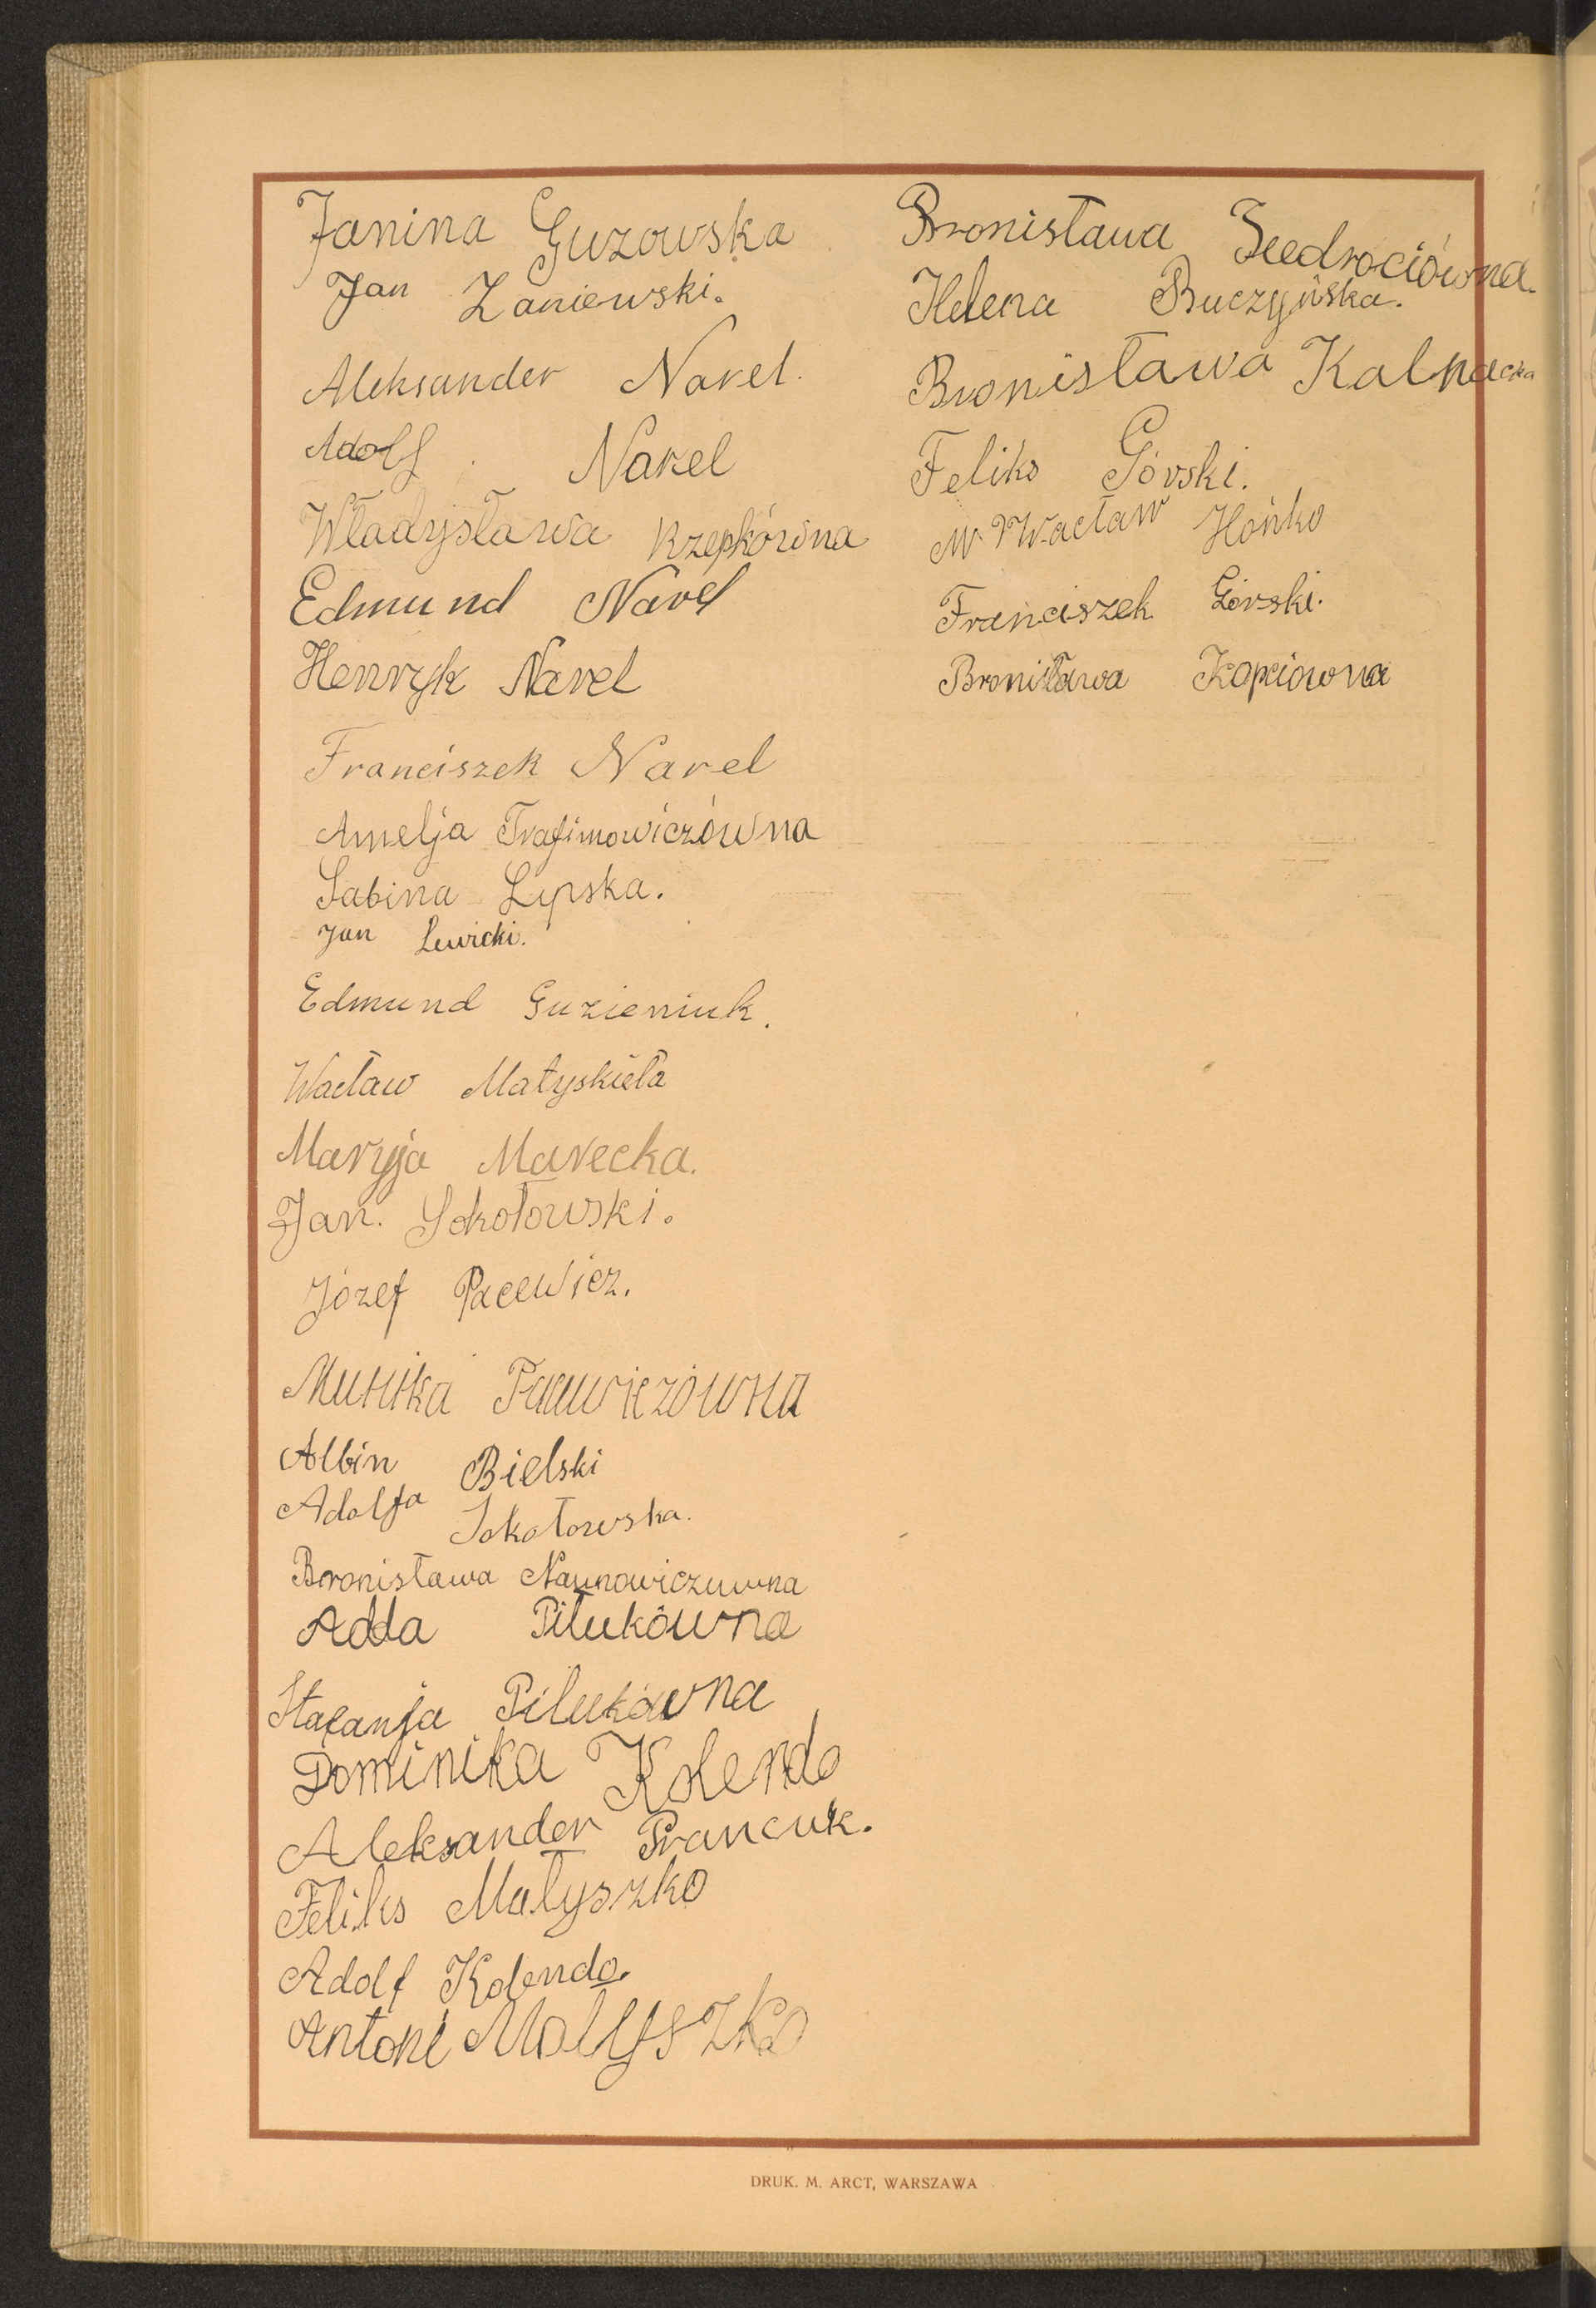 Janina Guzowska
Jan Zaniewski.
Aleksander Narel.
Adolf Narel
Władysława Rzepkówna
Edmund Narel
Henryk Narel
Franciszek Narel
Amelja Trafimowiczówna
Sabina Lipska.
Jan Lewicki.
Edmund Guzieniuk.
Wacław Matyskieła
Maryja Marecka.
Jan. Sokołowski.
Józef Pacewicz.
Albin Bielski
Adolfa Sokołowska.
Bronisława Naunowiczuwna
Adda Pilukówna
Stafanja Pilukówna
Dominika Kolendo
Aleksander Prancuk.
Feliks Małyszko
Adolf Kolendo.
Antoni Małyszko
Bronisława
Helena Buczyńska.
Bronisława Kalnacka
Feliks Górski.
Wacław Hońko
Franciszek Górski.
Bronisława Kopciowna
DRUK. M. ARCT, WARSZAWA